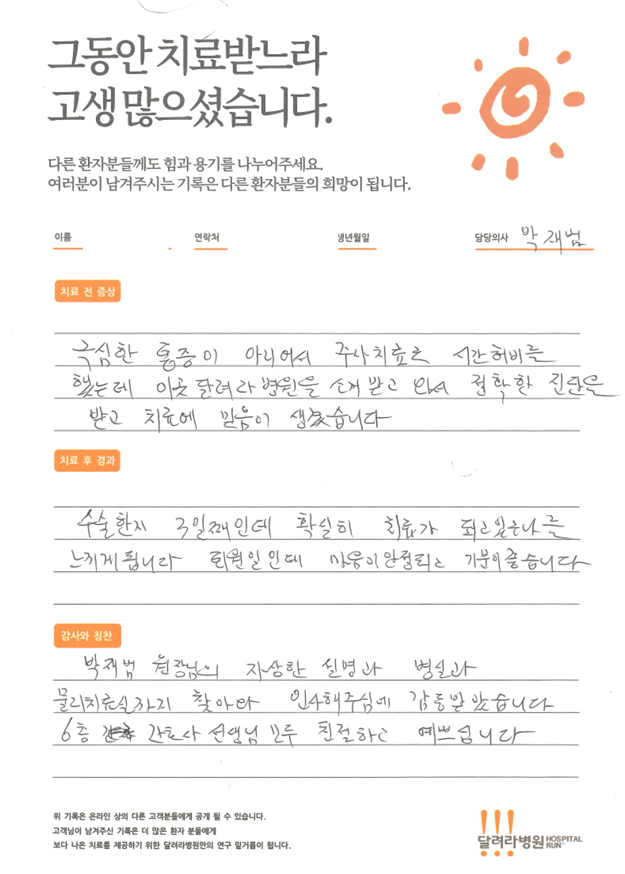 그동안 치료받느라
고생 많으셨습니다.
다른 환자분들께도 힘과 용기를 나누어주세요.
여러분이 남겨주시는 기록은 다른 환자분들의 희망이 됩니다.
이름 연락처 생년월일 담당의사 박재범
치료 전 증상
극심한 통증이 아니어서 주사치료로 시간허비를
했는데 이곳 달려라병원을 소개받고 와서 정확한 진단을
받고 치료에 믿음이 생겼습니다
치료 후 경과
수술한지 3일째인데 확실히 치료가 되고있는나를
느끼게됩니다 퇴원일인데 마음이안정되고 기분이좋습니다
감사와 칭찬
박재범 원장님의 자상한 설명과 병실과
물리치료실까지 찾아와 인사해주심에 감동받았습니다
6층 간호사 선생님 모두 친절하고 예쁘십니다
위 기록은 온라인 상의 다른 고객분들에게 공개 될 수 있습니다.
고객님이 남겨주신 기록은 더 많은 환자 분들에게
보다 나은 치료를 제공하기 위한 달려라병원만의 연구 밑거름이 됩니다.
!!!
달려라병원 HOSPITAL RUN